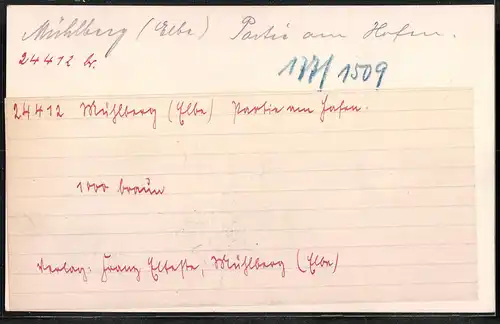 Mühlberg (Elbe) Partie am Hafen.
24412 br.
177/1509
24412 Mühlberg (Elbe) Partie am Hafen.
1000 braun
Verlag: Franz Elteste, Mühlberg (Elbe)